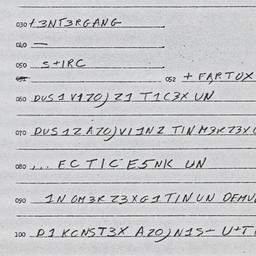 030 + 3NT3RGANG
040 —
050 S+IRC
052 + FARTOX
060 DUS1 V1ZO) Z1 T1C3X UN
070 DUS1Z AZO)VI1NZ TINM3RZ3X
080 ... FCTICE5NK UN
090 1NOM3RZ3XG1TINUN OFMU
100 D1 KCNST3X AZO)N1S— U+T